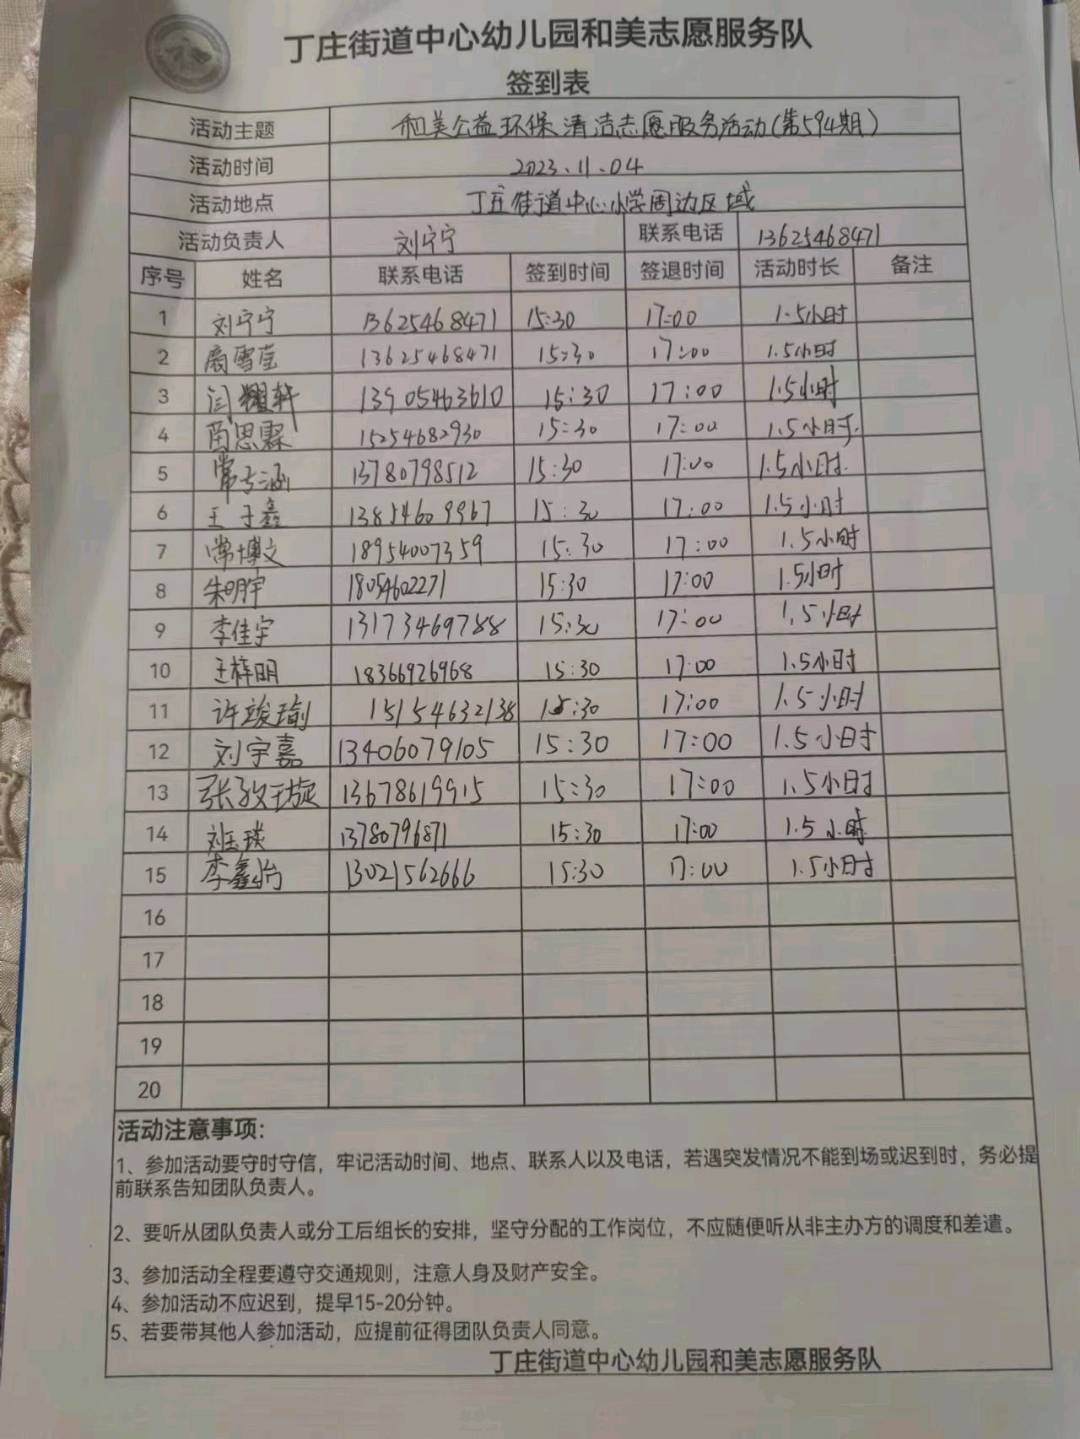 丁庄街道中心幼儿园和美志愿服务队
签到表
活动主题 和美公益环保清洁志愿服务活动(第594期)
活动时间 2023.11.04
活动地点 丁庄街道中心小学周边区域
活动负责人 刘宁宁 联系电话 13625468471
序号 姓名 联系电话 签到时间 签退时间 活动时长 备注
1 刘宁宁 13625468471 15:30 17:00 1.5小时
2 雪莹 13625468471 15:30 17:00 1.5小时
3 闫耀轩 13905463610 15:30 17:00 1.5小时
4 思霖 15254682930 15:30 17:00 1.5小时.
5 常涵 13780798512 15:30 17:00 1.5小时.
6 王子鑫 13854609967 15:30 17:00 1.5小时
7 常博文 18954007359 15:30 17:00 1.5小时
8 朱明宇 18054602271 15:30 17:00 1.5小时
9 李佳宇 13173469788 15:30 17:00 1.5小时
10 王梓明 18366926968 15:30 17:00 1.5小时
11 许竣瑜 15154632138 15:30 17:00 1.5小时
12 刘宇嘉 13406079105 15:30 17:00 1.5小时
13 张璇 13678619915 15:30 17:00 1.5小时
14 刘玉瑛 13780796871 15:30 17:00 1.5小时
15 李鑫怡 13021562666 15:30 17:00 1.5小时
16
17
18
19
20
活动注意事项：
1、参加活动要守时守信，牢记活动时间、地点、联系人以及电话，若遇突发情况不能到场或迟到时，务必提
前联系告知团队负责人。
2、要听从团队负责人或分工后组长的安排，坚守分配的工作岗位，不应随便听从非主办方的调度和差遣。
3、参加活动全程要遵守交通规则，注意人身及财产安全。
4、参加活动不应迟到，提早15-20分钟。
5、若要带其他人参加活动，应提前征得团队负责人同意。
丁庄街道中心幼儿园和美志愿服务队